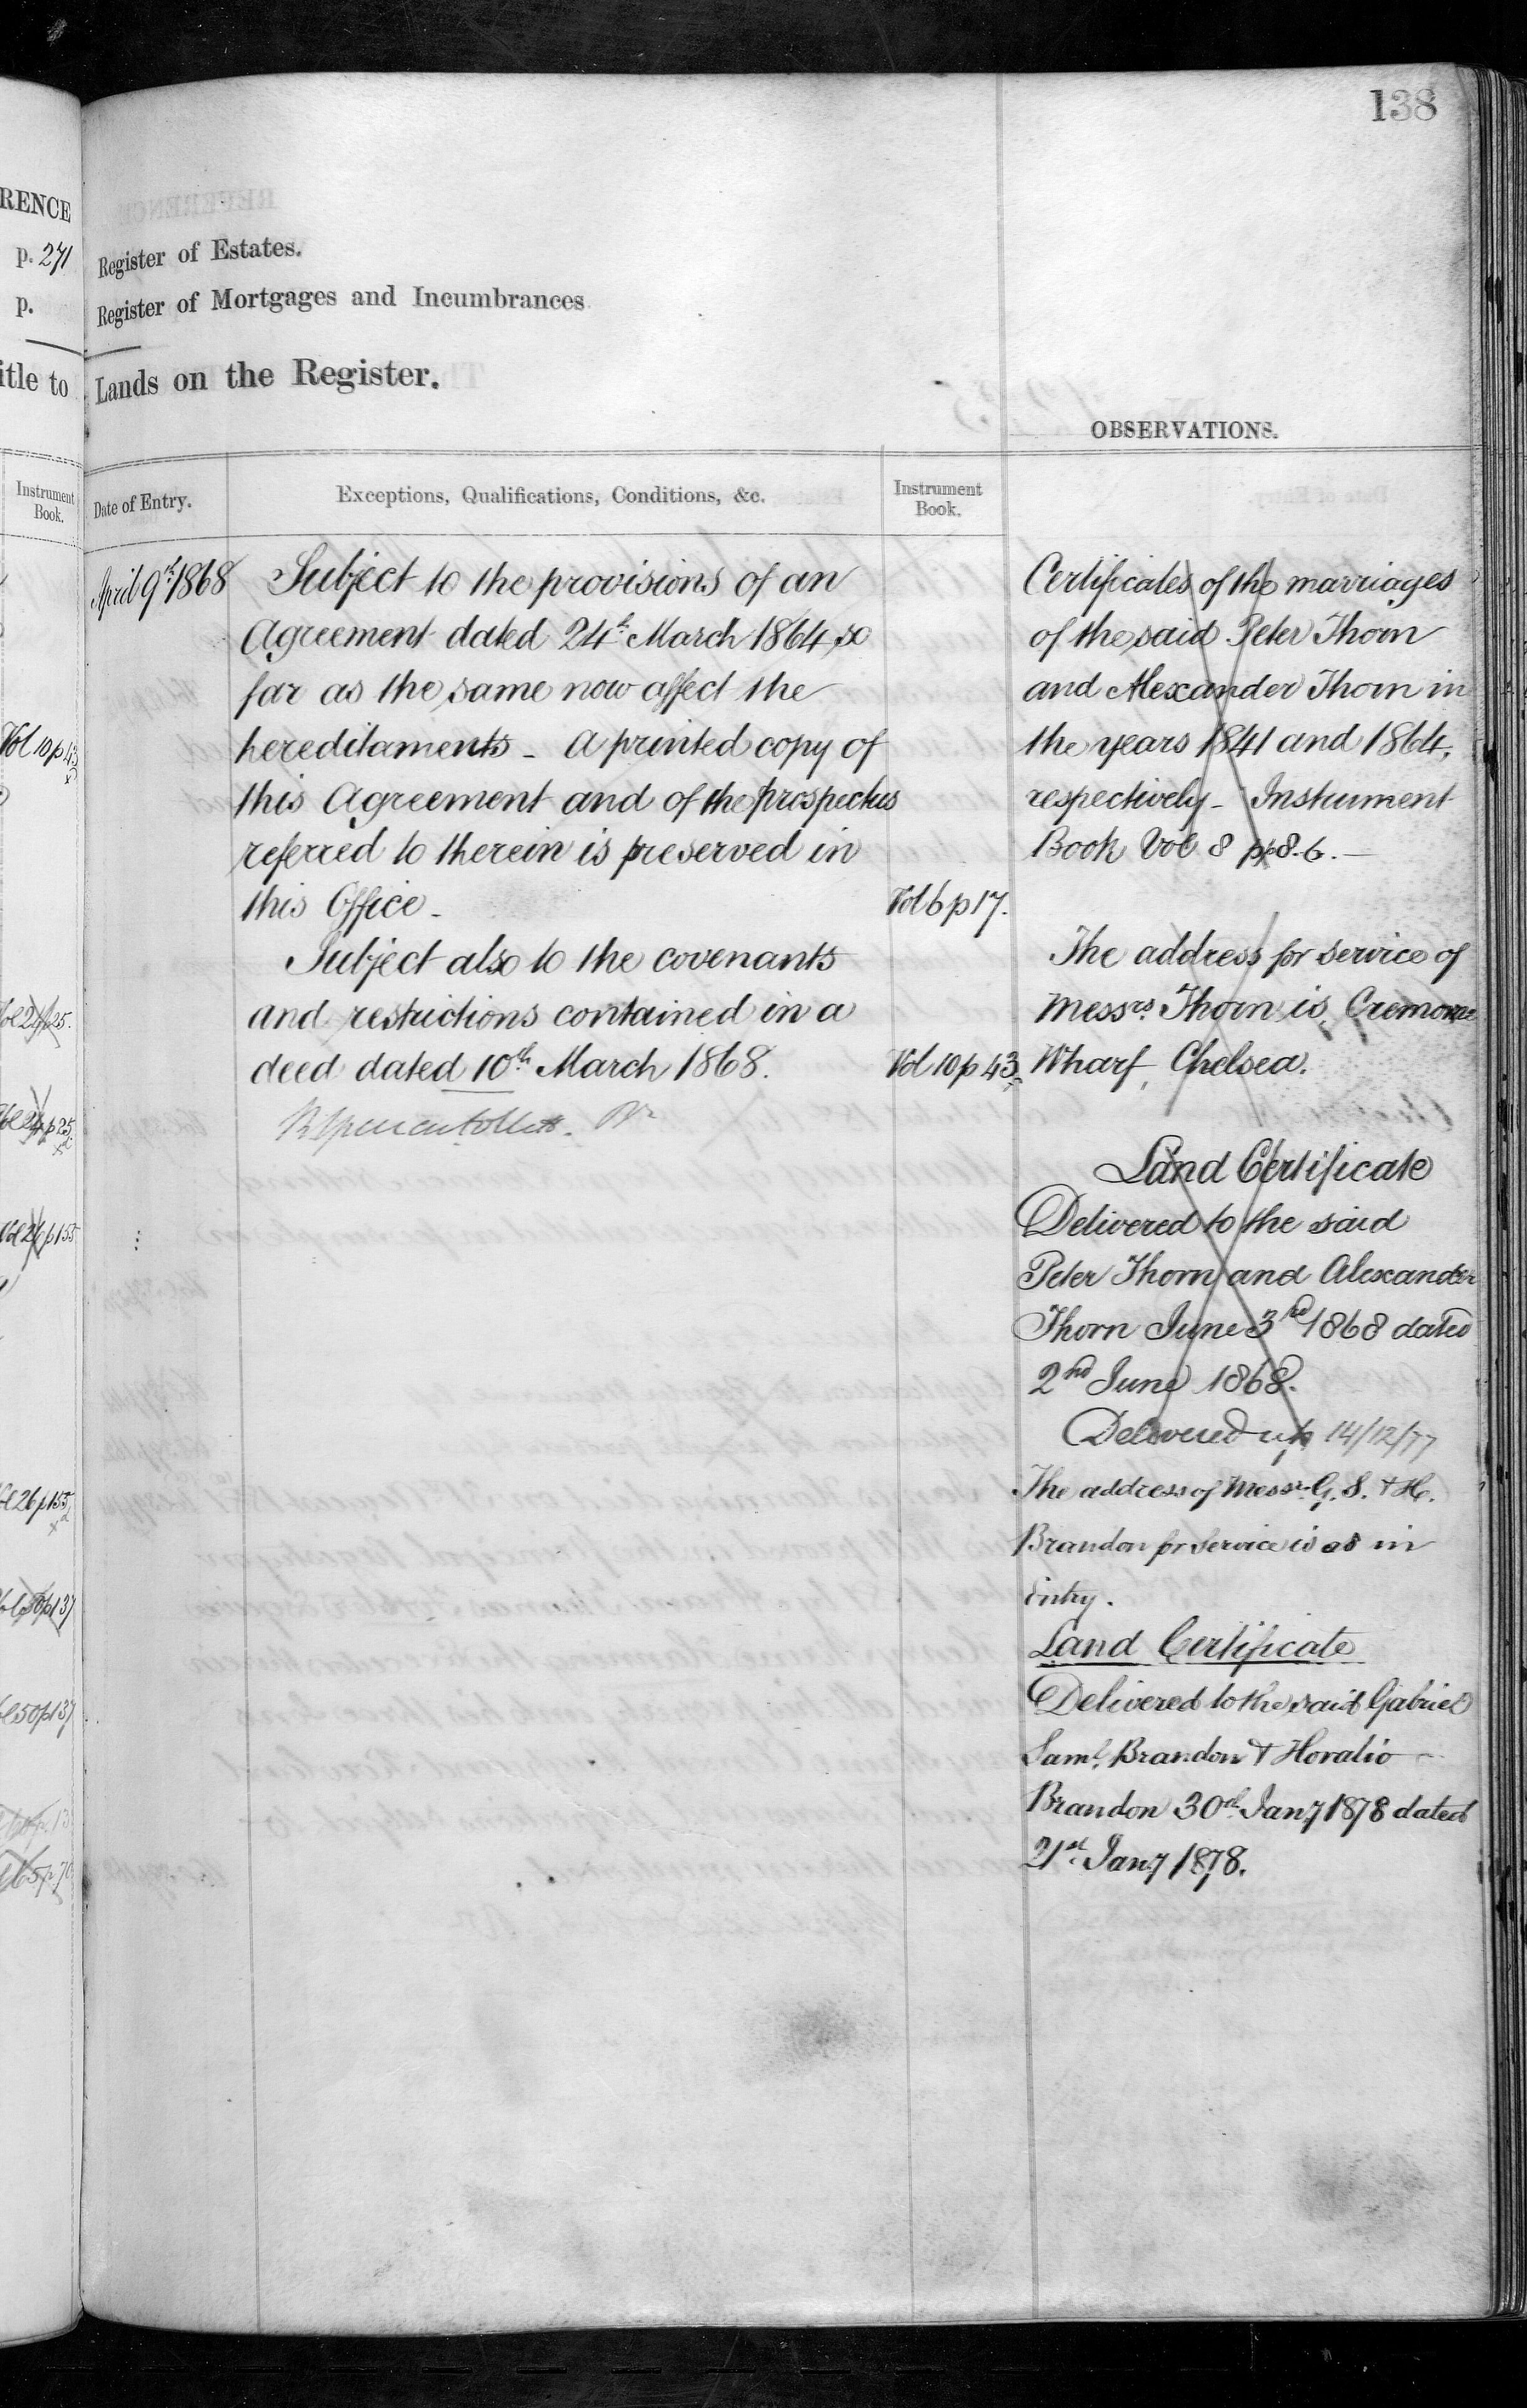 138
RENCE
p. 271
p.
itle to
Instrument
Book.
Vol 10 p 43
Vol 26 p 155
Vol 26 p 155
Vol 50 p 137
Vol 50 p 137
Register of Estates.
Register of Mortgages and Incumbrances
Lands on the Register.
Date of Entry.
Exceptions, Qualifications, Conditions, &c.
Instrument
Book.
April 9th 1868
Subject to the provisions of an
Agreement dated 24th March 1864, so
far as the same now affect the
hereditaments - A printed copy of
this Agreement and of the prospectus
referred to therein is preserved in
this Office -
Vol 6 p 17.
Subject also to the covenants
and restrictions contained in a
deed dated 10th March 1868.
Vol 10 p 43
OBSERVATIONS.
Certificates of the marriages
of the said Peter Thorn
and Alexander Thorn in
the years 1841 and 1864,
respectively - Instrument
Book Vol 8 pp 8. 6. —
The address for service of
Messrs. Thorn is, Cremorne
Wharf, Chelsea.
Land Certificate
Delivered to the said
Peter Thorn and Alexander
Thorn June 3rd 1868 dated
2nd June 1868.
Delivered up 14/12/77
The address of Messrs. G. S. & H.
Brandon for service is as in
Entry.
Land Certificate
Delivered to the said Gabriel
Saml. Brandon & Horatio
Brandon 30th Jany 1878 dated
21st Jany 1878.